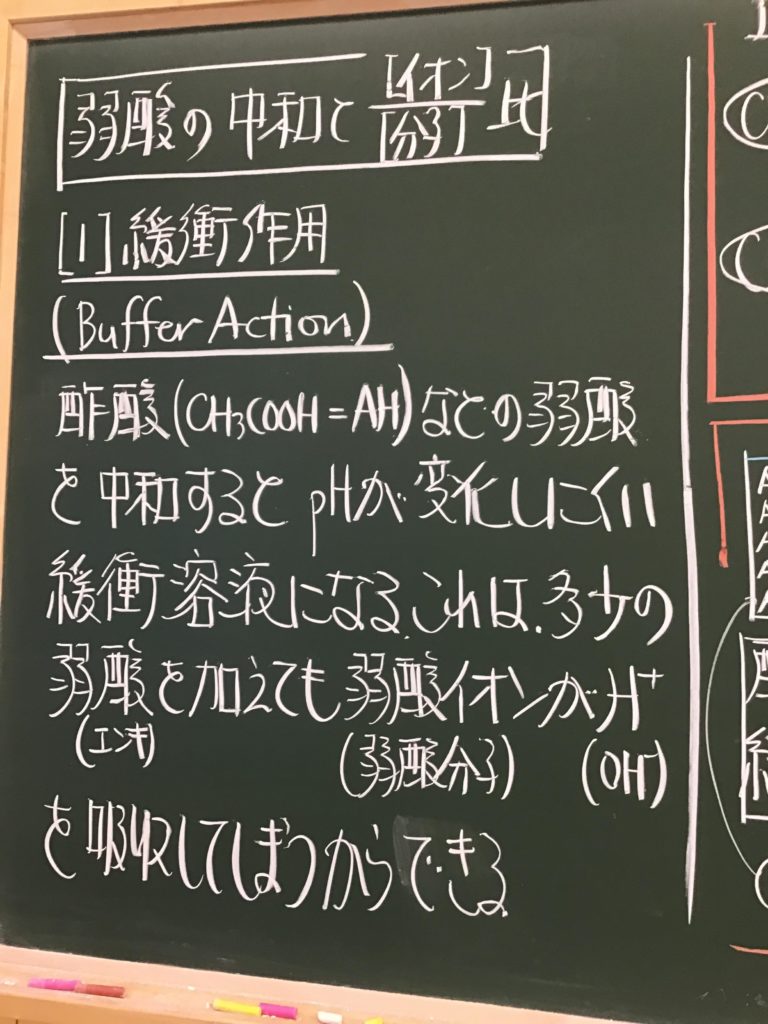 弱酸の中和と[イオン]/[分子]比
[1]緩衝作用
(Buffer Action)
酢酸(CH₃COOH=AH)などの弱酸
を中和するとpHが変化しにくい
緩衝溶液になる.これは.多少の
弱酸を加えても弱酸イオンがH⁺
(エンキ) (弱酸分子) (OH⁻)
を吸収してしまうからできる